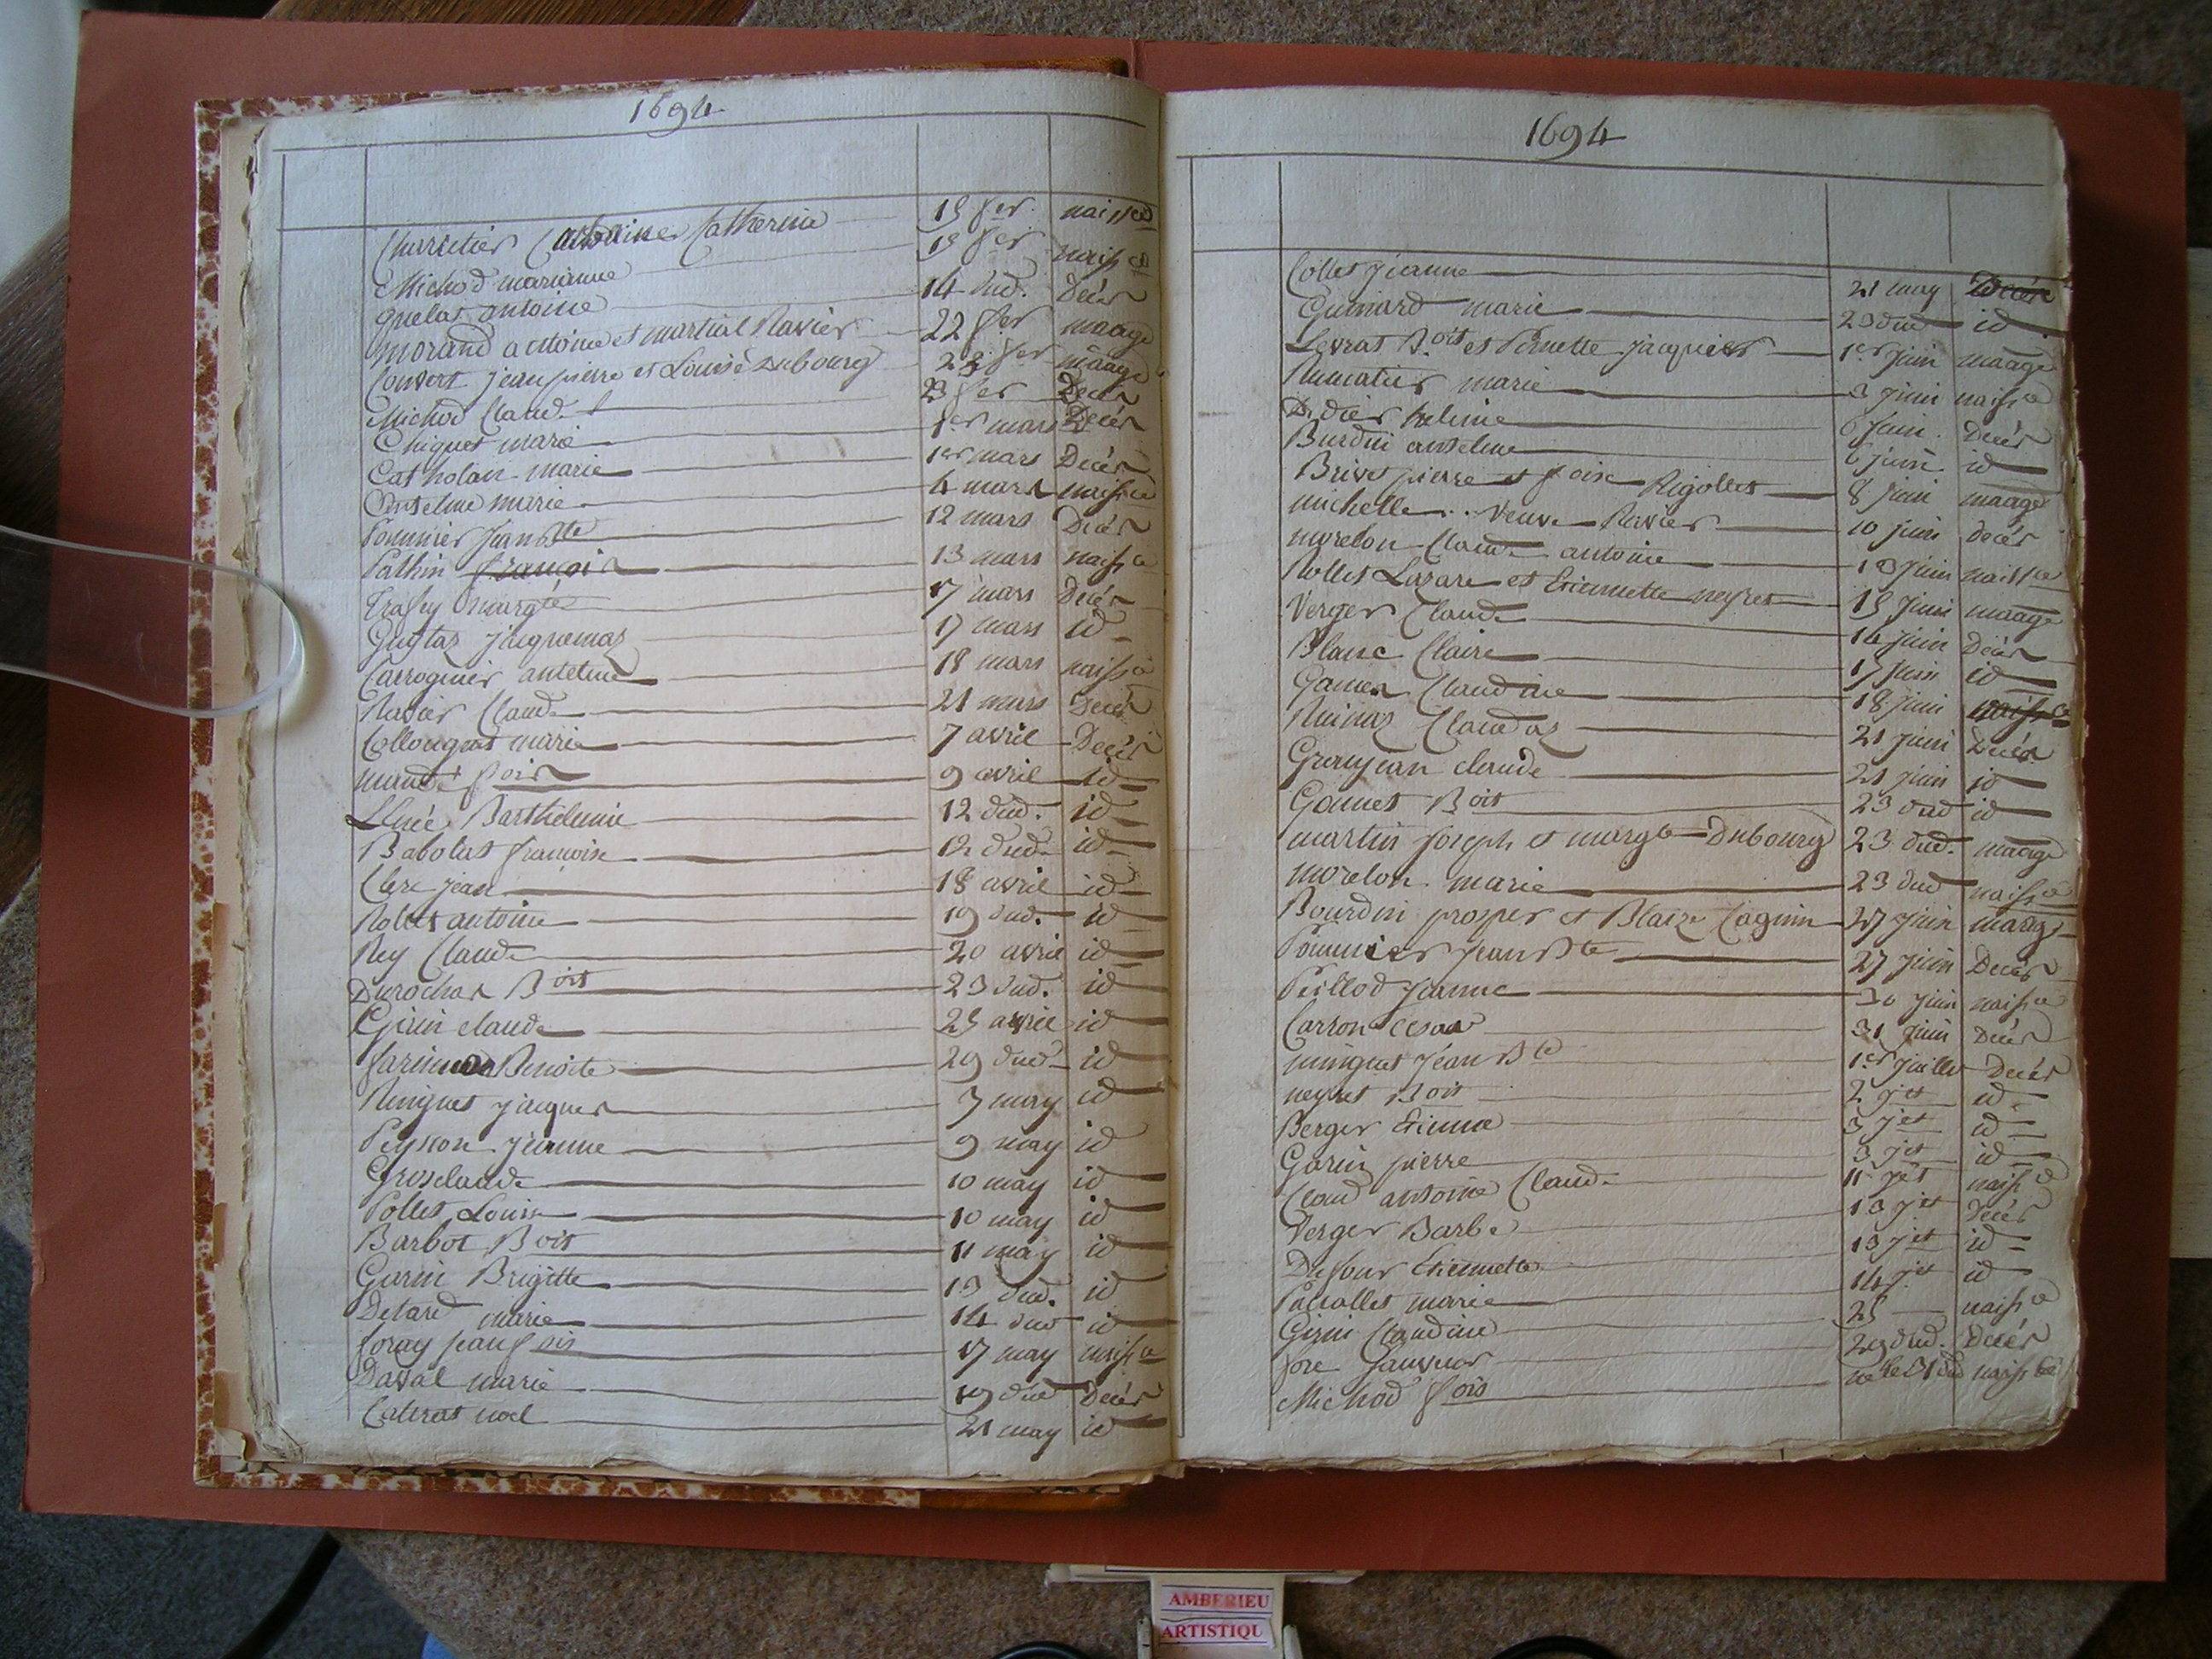 1694
Charretier Antoine Catherine 15 fer naissce
Michod marianne 19 fer naissce
quelat antoine 14 dud. Decés
morand antoine et martial Ravier 22 fer maage
Convert jean pierre et Louise Dubourg 28 fer maage
Michod Claud. 23 fer Decés
Chiquet marie 1er mars Decés
Catholan marie 1er mars Decés
Anselme marie 4 mars naissce
Pommier Jean Bte 12 mars Decés
Pathin françois 13 mars naissce
margte 17 mars Decés
jacquemaz 17 mars id
Carrognier antelme 18 mars naissce
Ravier Claude 21 mars Decés
Collonguet marie 7 avril Decés
fois 9 avril id
Barthelemie 12 dud. id
Babolat francoise 12 dud id
Clerc jean 18 avril id
Rollet antoine 19 dud. id
Rey Claude 20 avril id
Durochat Boit 23 dud. id
Girin claude 25 avril id
Benoite 29 dud id
Ringuet jacques 7 may id
Peysson jeanne 9 may id
Grosclaude 10 may id
Pollet Louise 10 may id
Barbot Boit 11 may id
Garin Brigitte 13 dud. id
Detard marie 14 dud id
foray jean fois 17 may naissce
Daval marie 19 dud Decés
noel 21 may id
1694
Collet jeanne 21 may Decés
Guinard marie 23 dud id
Levrat Boit et Pernette jacquier 1er juin maage
marie 3 juin naissce
Didier heleine 6 juin Decés
Burdin anselme 6 juin id
Brivet pierre et foise Rigollet 8 juin maage
michelle .. veuve Ravier 10 juin decés
morelon Claude antoine 13 juin naissce
Rollet Lazare et Etiennette neyret 15 juin maage
Verger Claude 16 juin Decés
Blanc Claire 17 juin id
Claudine 18 juin naissce
Claudaz 21 juin Decés
Granjean claude 21 juin id
Gonnet Boit 23 dud id
martin joseph et margte Dubourg 23 dud. maage
morelon marie 23 dud naissce
Bourdin prosper et Blaize Cagnin 27 juin maage
Pommier jean Bte 27 juin Decés
Peillod jeanne 30 juin naissce
Carron Cesar 31 juin Decés
ninguet jean Bte 1er juillet Decés
neyret Boit 2 jet id
Berger Etienne 3 jet id
Garin pierre 3 jet id
Claud antoine Claude 11 jet naissce
Verger Barbe 13 jet Decés
Dufour Etiennette 13 jet id
marie 14 jet id
Girin Claudine 25 naissce
29 dud. Decés
Michod fois né le 31 dud naissce
AMBERIEU
ARTISTIQU